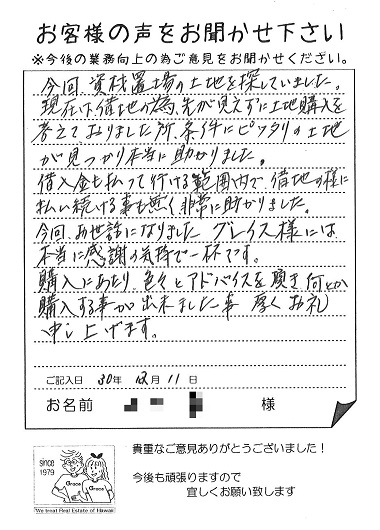 お客様の声をお聞かせ下さい
※今後の業務向上の為ご意見をお聞かせください。
今回、資材置場の土地を探していました。
現在は借地の為、先が見えずに土地購入を
考えておりました所、条件にピッタリの土地
が見つかり本当に助かりました。
借入金も払って行ける範囲内で、借地の様に
払い続ける事も無く非常に助かりました。
今回、お世話になりました グレイス様には
本当に感謝の気持で一杯です。
購入にあたり、色々とアドバイスを頂き何とか
購入する事が出来ました事 厚くお礼
申し上げます。
ご記入日 30年 12月 11日
お名前 様
since
1979
Grace
Grace
We treat Real Estate of Hawaii
貴重なご意見ありがとうございました！
今後も頑張りますので
宜しくお願い致します